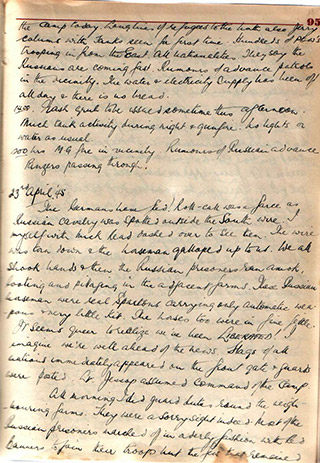 95
the camp today. Long lines of refugees to the north also Jerry
column with tanks seen for first time. Hundreds of P.O.W's
trooping in from the East. All nationalities. They say the
Russians are coming fast. Rumours of advance patrols
in the vicinity. The water & electricity supply has been off
all day & there is no bread.
Much tank activity during night & gunfire. No lights or
water as usual.
hrs M.G. fire in vicinity Rumours of Russian advance
Rangers passing through.
23rd April 45
The Germans have fled! Roll-call was a farce as
Russian cavalry was spotted outside the South wire. I
myself with Mick Lead dashed over to see them. The wire
was torn down & the horseman galloped up to us. We all
shook hands & then the Russian prisoners ran amok,
looting and pillaging in the adjacent farms. These Russian
horsemen were real Spartans carrying only automatic wea-
pons & very little kit. The horses too were in fine fettle.
It seems queer to realize we've been LIBERATED! I
imagine we're well ahead of the news. Flags of all
nations immediately appeared on the front gate & guards
were posted. Lt Jessop assumed command of the camp.
All morning I did guard duties round the neigh-
bouring farms. They were a sorry sight indeed. Most of the
Russian prisoners marched off in orderly fashion with red
banners to join their troops but the few that remained